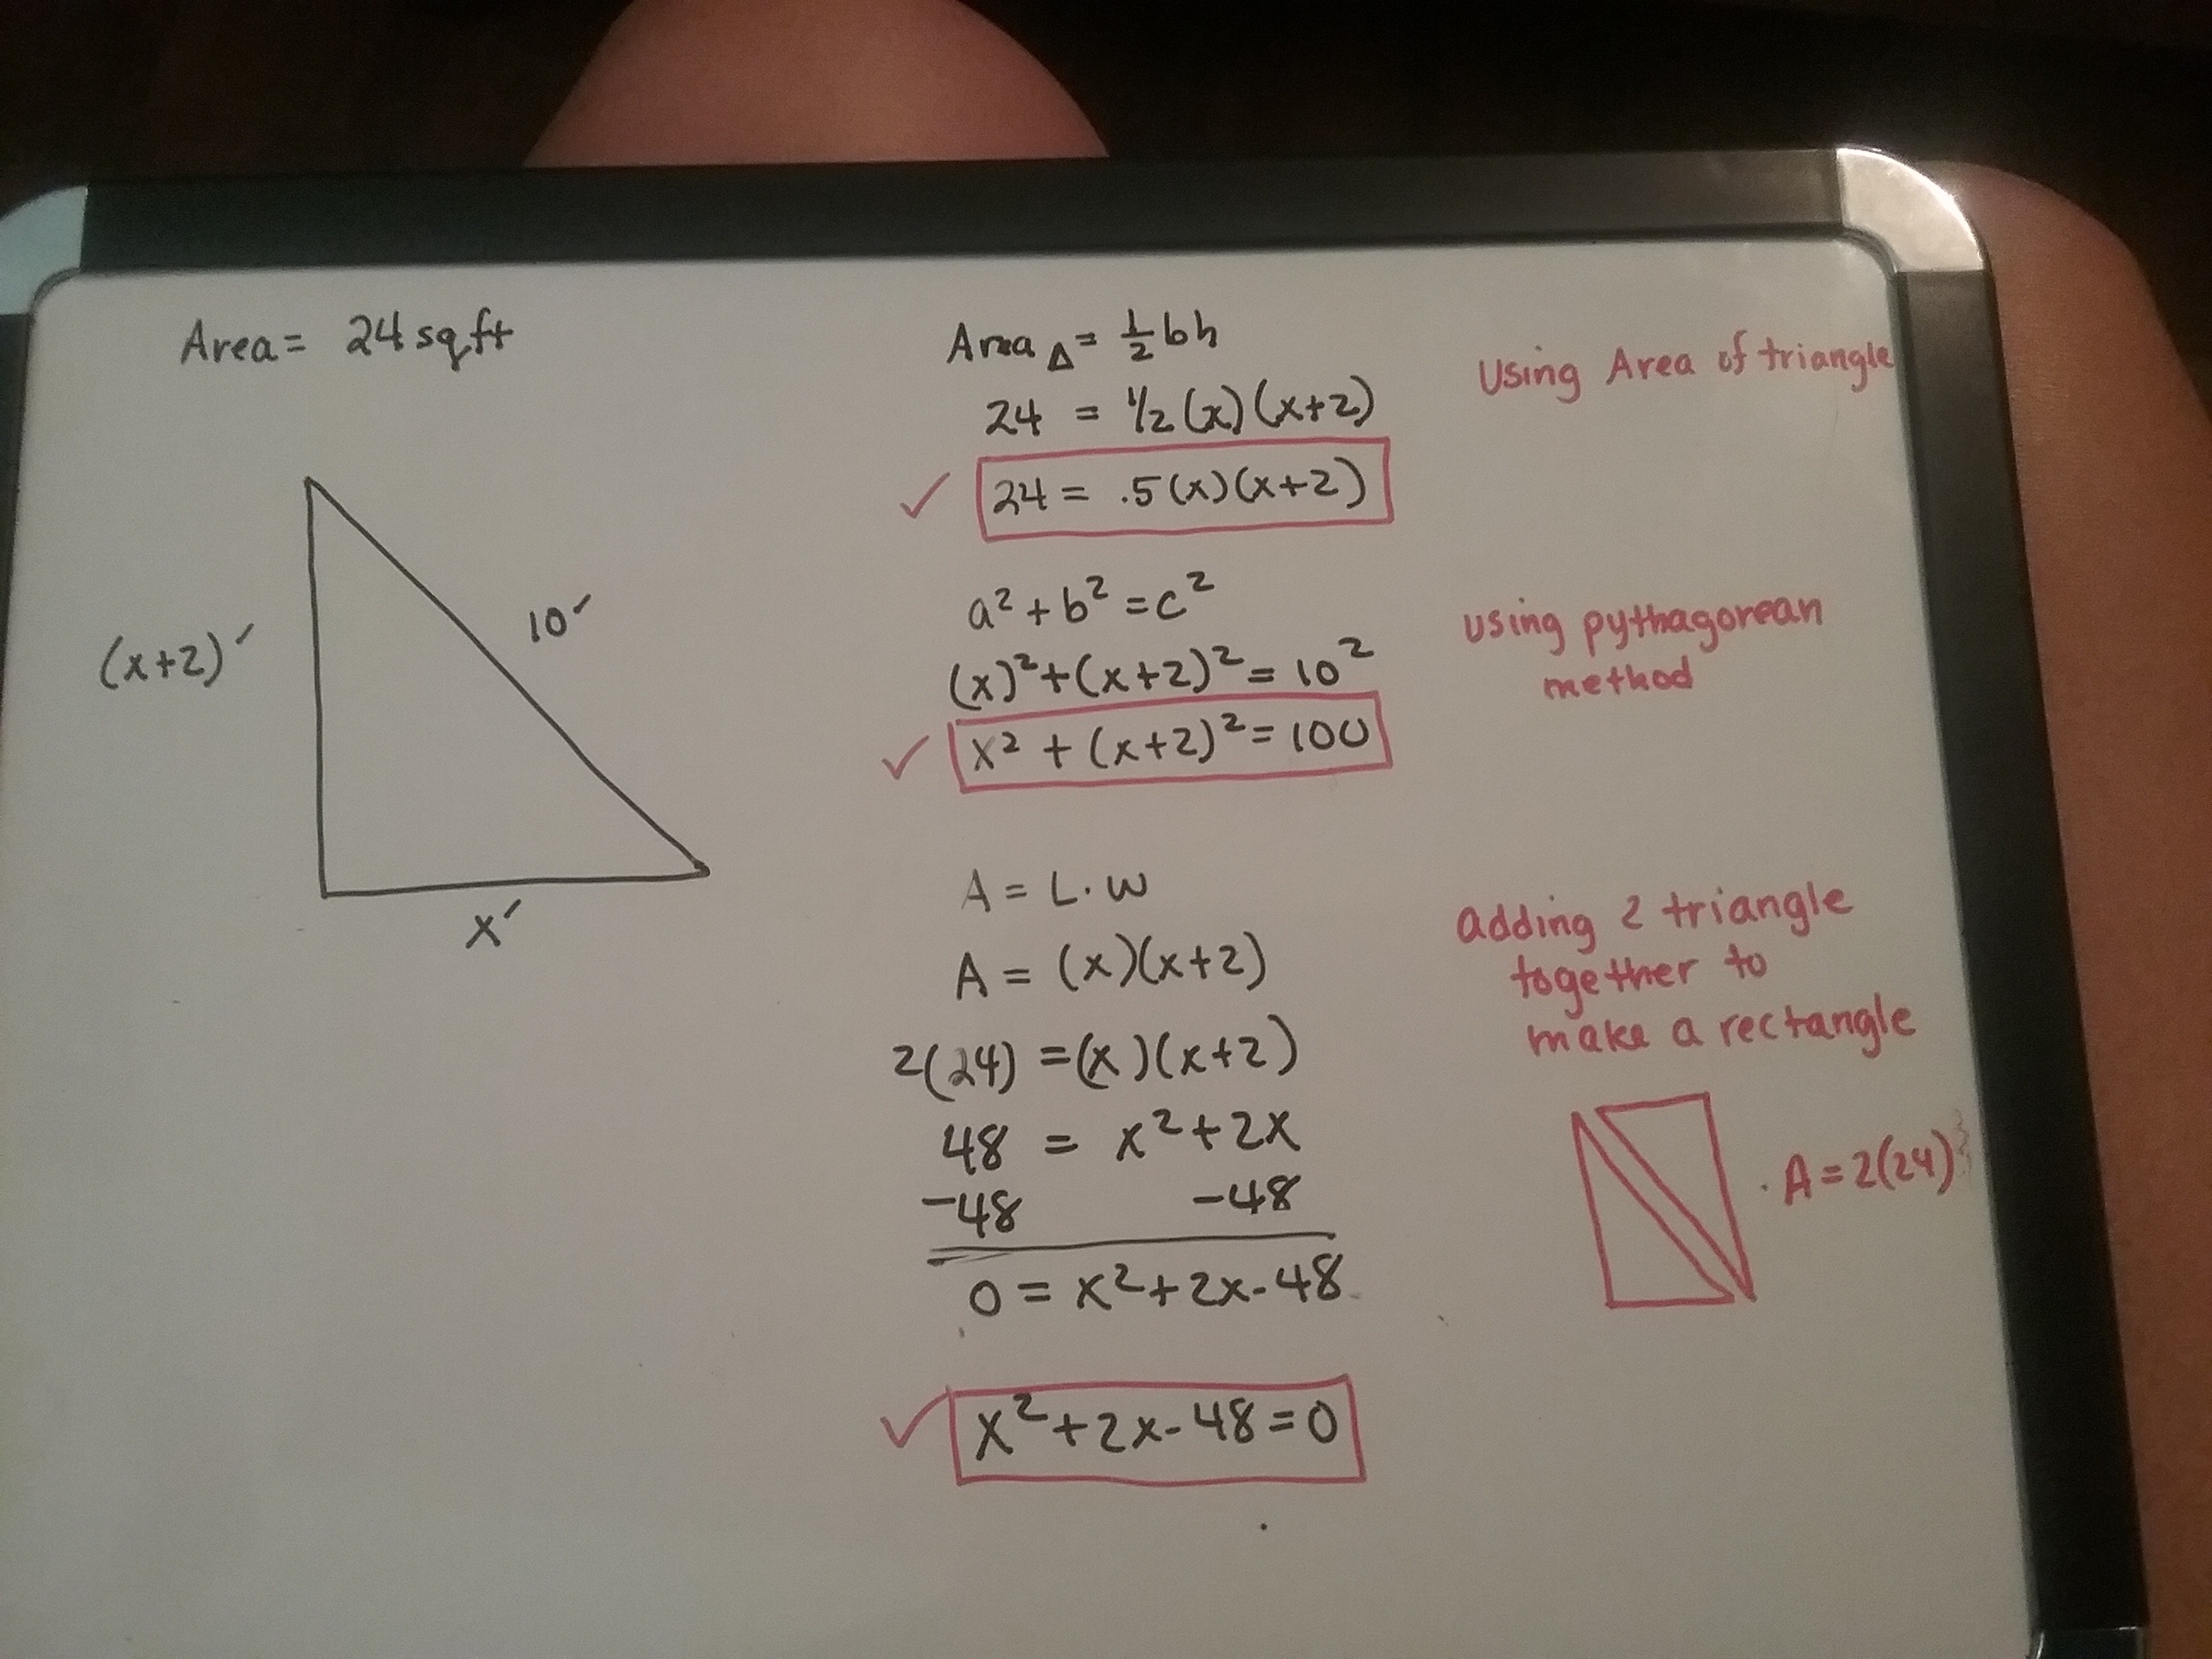 Area = 24 sq ft
(x+2)′
10′
x′
Area △ = ½ bh
24 = ½ (x)(x+2)
24 = .5(x)(x+2)
using Area of triangle
a² + b² = c²
(x)² + (x+2)² = 10²
x² + (x+2)² = 100
using pythagorean
method
A = L · W
A = (x)(x+2)
2(24) = (x)(x+2)
48 = x² + 2x
-48 -48
0 = x² + 2x - 48
x² + 2x - 48 = 0
adding 2 triangle
together to
make a rectangle
A = 2(24)